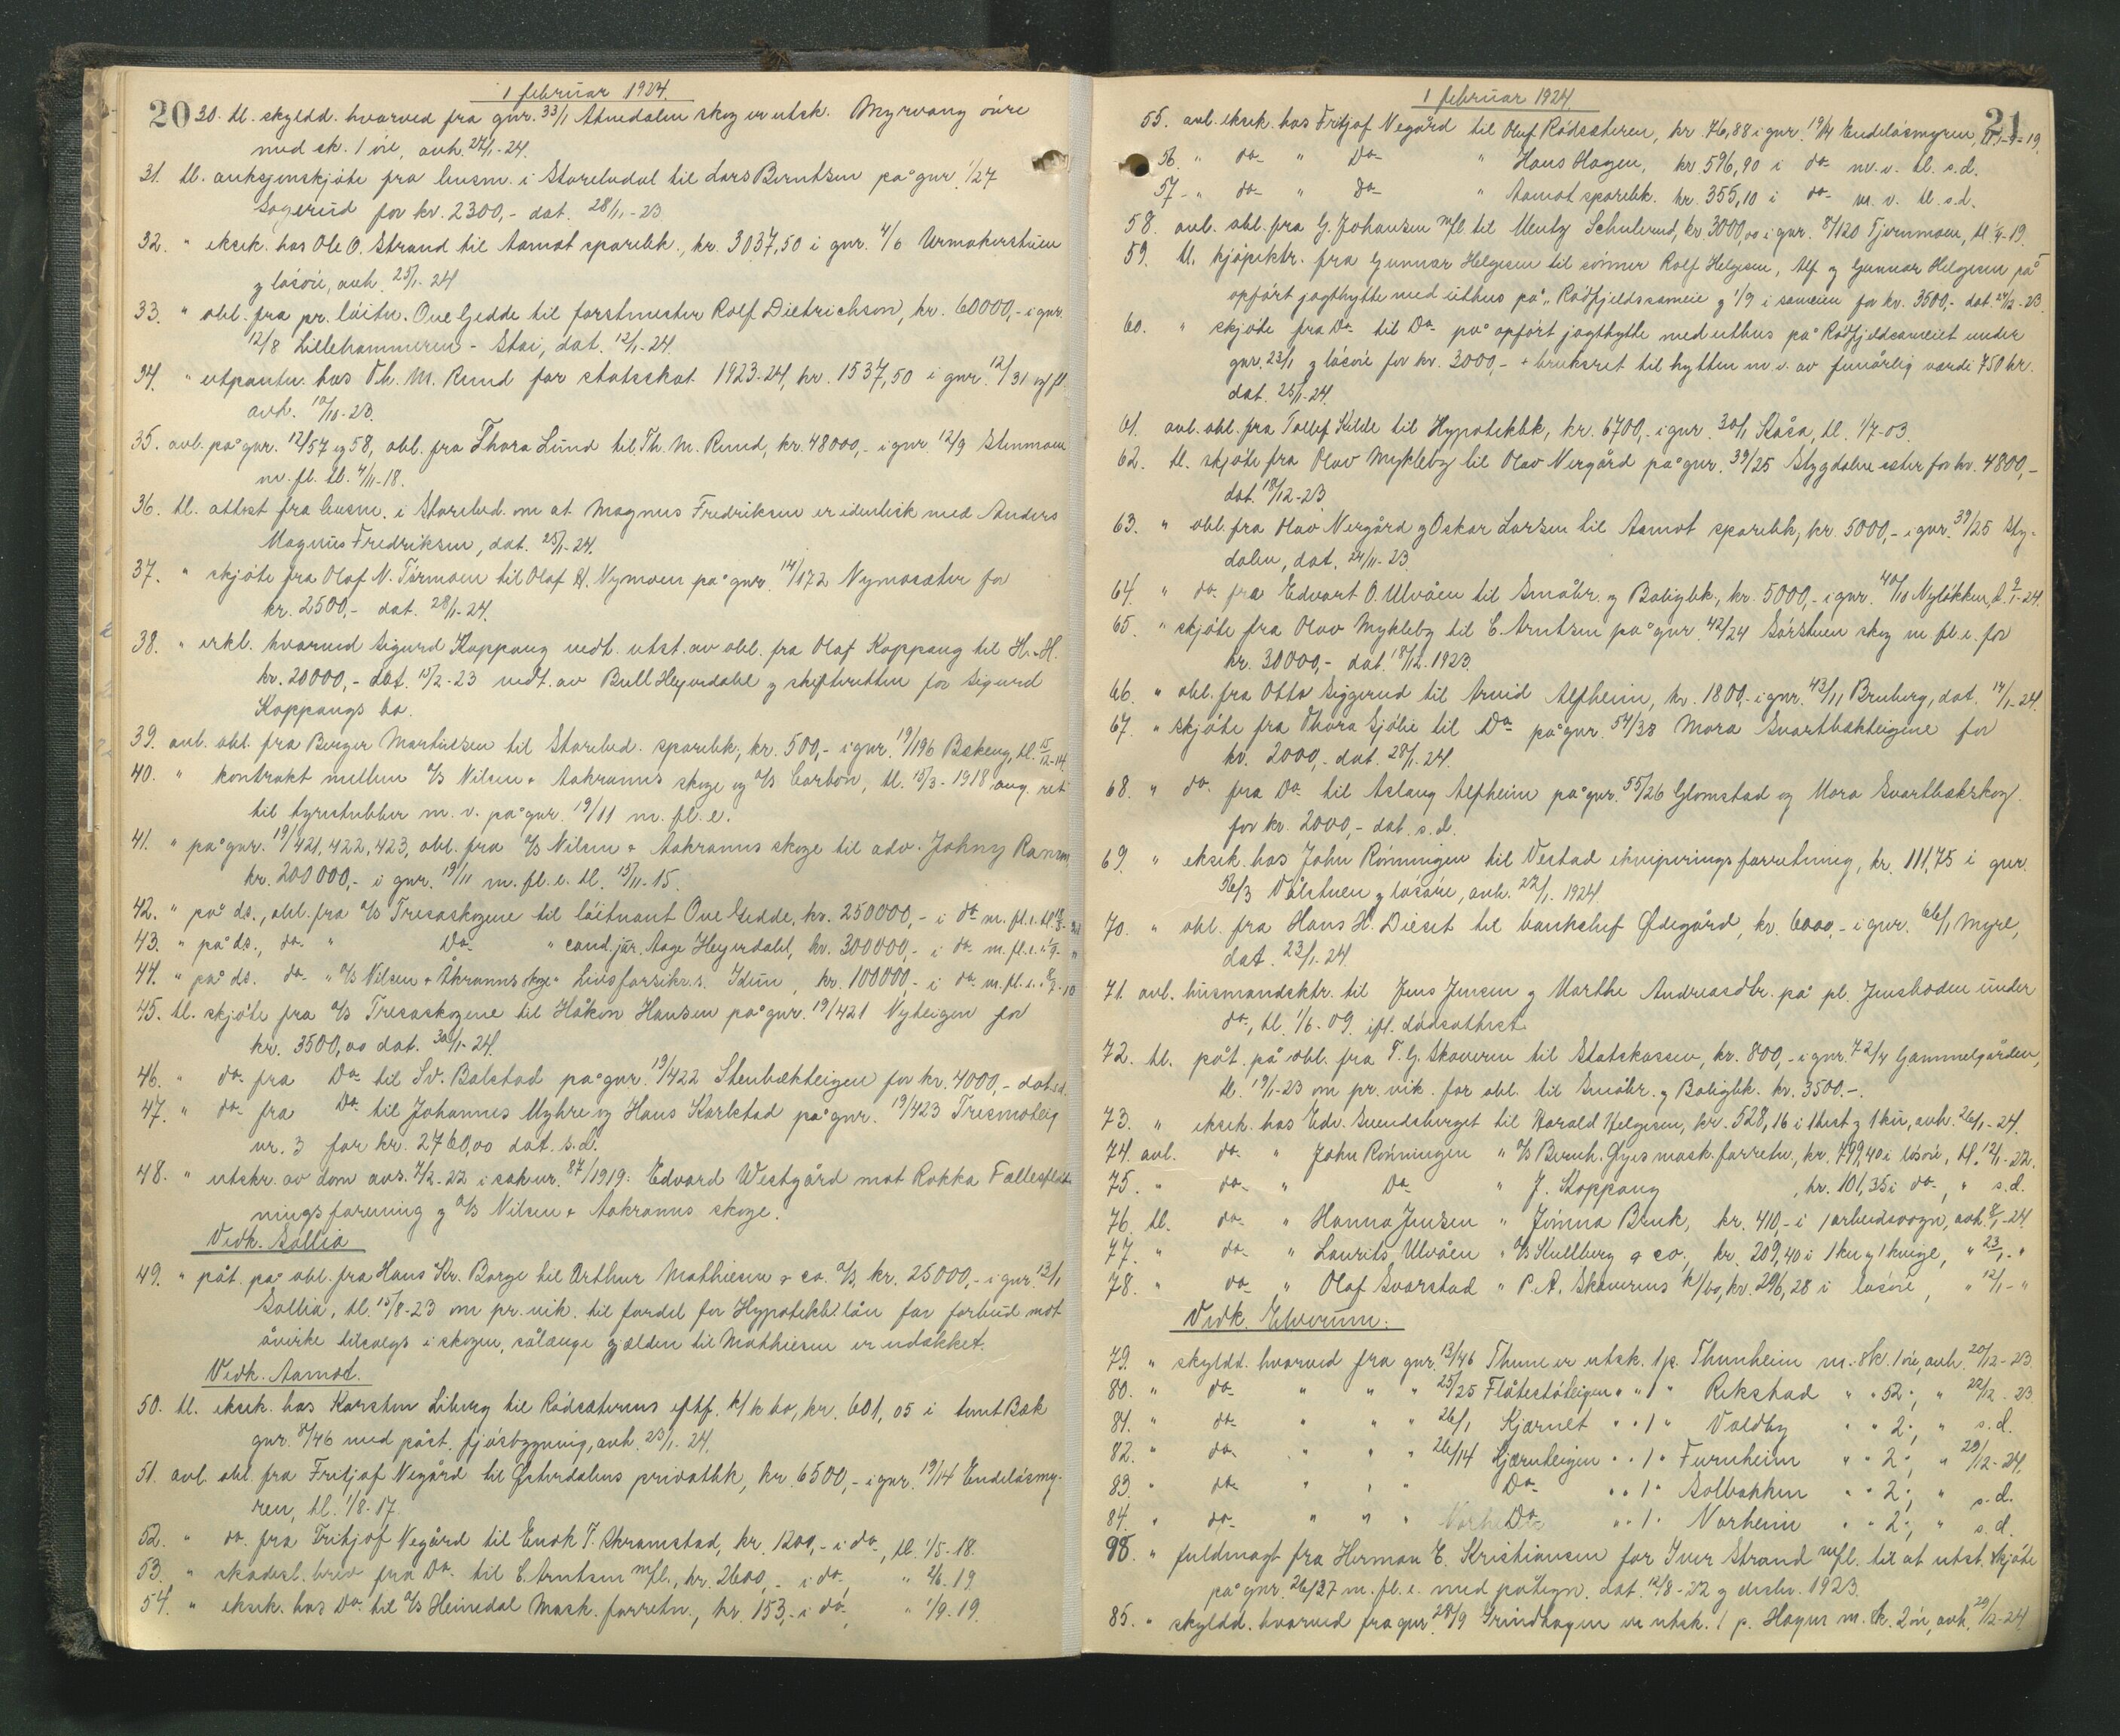 1 februar 1924.
20 30. tl. skyldd. hvorved fra gnr. 33/1 Atnedalen skog er utsk. Myrvang øvre
med sk. 1 øre, avh. 24/1-24.
31. tl. auksjonskjöte fra lensm. i Storelvdal til Lars Berntsen på gnr. 1/27
Sagerud for kr. 2300,- dat. 28/11-23
32. " eksek. hos Ole O. Strand til Aamot sparebk., kr. 3037,50 i gnr. 4/6 Urmakerstuen
g lösöre, avh. 25/1-24
33. " obl. fra pr. löitn. Ove Gedde til forstmester Rolf Dietrichson, kr. 60000,- i gnr.
12/8 Lillehammeren - Stai, dat. 12/1-24.
34. " utpantn. hos Th. M. Rund for statsskat 1923-24, kr. 1537,50 i gnr. 12/31 og fl.
avh. 10/10-23.
35. avl. på gnr. 12/57 og 58, obl. fra Thora Lund til Th. M. Rund, kr. 48000,- i gnr 12/9 Stenmoen
m. fl. tl. 4/11-18.
36. tl. attest fra lensm. i Storelvd. om at Magnus Fredriksen er identisk med Anders
Magnus Fredriksen, dat. 25/1-24.
37. " skjöte fra Olaf N. Törmoen til Olaf H. Nymoen på gnr. 14/172 Nymosæter for
kr. 2500,- dat. 28/1-24.
38. " erkl. hvorved Sigurd Koppang vedt. utst. av obl. fra Olaf Koppang til H.-H.
kr. 20000,- dat. 15/2-23 vedt. av Bull Heyerdahl g skifteretten for Sigurd
Koppangs bo.
39. avl. obl. fra Berger Martinsen til Storelvd. sparebk, kr. 500,- i gnr. 19/196 Bekeng, tl. 15/12-14.
40. " kontrakt mellem A/S Nilsen & Aakranns skoge og A/S Carbon, tl. 15/3-1918 ang. ret
til tyristubber m. v. på gnr. 19/11 m. fl. e.
41. " på gnr. 19/421, 422, 423, obl. fra A/S Nilsen & Aakranns skoge til adv. Johny
kr. 200000,- i gnr. 19/11 m. fl. e. tl. 15/11-15.
42. " på ds., obl. fra A/S Tresaskogene til löitnant Ove Gedde, kr. 250000,- i do m. fl. e. tl.
43. " på ds., do " Do " cand. jur. Aage Heyerdahl, kr. 300000,- i do m. fl. e.
44. " på ds. do " A/S Nilsen & Åkranns skoge " Livsforsikr.s. Idun, kr. 100000.- i do m. fl. e.
45. tl. skjöte fra A/S Tresaskogene til Håkon Hansen på gnr. 19/421 Nyteigen for
kr. 3500,00 dat. 30/1-24.
46. " do fra Do til Sv. Balstad på gnr. 19/422 Stenbækteigen for kr. 4000,- dat. s.d.
47. " do fra Do til Johannes Myhre og Hans Karlstad på gnr. 19/423 Tresmoteig
nr. 3 for kr. 2760,00 dat. s.d.
48. " utskr. av dom avs. 7/2-22 i sak nr. 87/1919: Edvard Westgård mot Rokka Fællesfløt-
ningsforening g A/S Nilsen & Aakranns skoge.
Vedk. Sollia
49. " påt. på obl. fra Hans Kr. Borge til Arthur Mathiesen & co. A/S, kr. 25000,- i gnr. 13/1
Sollia, tl. 15/8-23 om pr. vik. til fordel for Hypotekb. lån for forbud mot
åvirke tilsalgs i skogen, sålænge gjælden til Mathiesen er udækket.
Vedk. Aamot.
50. tl. eksek. hos Karsten Liberg til Rödsæterens eftf. k/k bo, kr. 601,05 i tomt Bæk
gnr. 8/46 med påst. fjösbygning, avh. 23/1-24.
51. avl. obl. fra Fritjof Negård til Østerdalens privatbk, kr. 6500,- i gnr. 19/14 Endelösmy-
ren, tl. 1/8-17.
52. " do fra Fritjof Negård til Endk T. Akramstad, kr. 1200,- i do, tl. 1/5-18.
53. " skadesl. brev fra Do til C. Arntsen mfl., kr. 2600,- i do, " 2/6-19.
54. " eksek. hos Do til A/S Heinedal Mask. forretn., kr. 153,- i do, " 1/9-19.
1 februar 1924.
21
55. avl. eksek. hos Fritjof Negård til Oluf Rödsæteren, kr. 76,88 i gnr. 19/14 Endelösmyren,
56. " do " Do " Hans Hagen, kr. 596,90 i do m.v. tl. s.d.
57. " do " Do " Aamot sparebk. kr. 355,10 i do m. v. tl. s.d.
58. avl. obl. fra G. Johansen mfl. til Mentz Schulerud, kr. 3000,00 i gnr. 8/120 Tjernmoen, tl.
59. tl. kjöpektr. fra Gunnar Helgesen til sönner Rolf Helgesen, Alf g Gunnar Helgesen på
opfört jagthytte med uthus på Rödfjeldssameie g 1/9 i sameiet for kr. 3500,- dat. 27/12-23
60. " skjöte fra Do til Do på opfört jagthytte med uthus på Rödfjeldsameiet under
gnr. 23/1 g lösöre for kr. 3000,- + bruksret til hytten m. v. av femårlig værdi 750 kr.
dat. 25/1-24.
61. avl. obl. fra Tollef Kilde til Hypotekbk, kr. 6700,- i gnr. 30/1 Skåsa, tl. 1/7-03.
62. tl. skjöte fra Olav Mykleby til Olav Nergård på gnr. 39/25 Stygdalen øster for kr. 4800,-
dat. 18/12-23.
63. " obl. fra Olav Nergård g Oskar Larsen til Aamot sparebk, kr. 5000,- i gnr. 39/25 Sty-
dalen, dat. 24/11-23.
64. " do fra Edvart O. Ulvåen til Småbr. g Boligbk., kr. 5000,- i gnr. 40/10 Nylökken,
65. " skjöte fra Olav Mykleby til C. Arntsen på gnr. 42/24 Sörstuen skog m fl. e. for
kr. 30000,- dat. 18/12.1923.
66. " obl. fra Otto Siggerud til Arvid Alfheim, kr. 1800,- i gnr. 43/11 Bruberg, dat. 14/1-24.
67. " skjöte fra Thora Sjölie til Do på gnr. 54/38 Mora Svartbækteigene for
kr. 2000,- dat. 28/1-24.
68. " do fra Do til Aslaug Alfheim på gnr. 55/26 Glomstad og Mora Svartbækskog
for kr. 2000,- dat. s.d.
69. " eksek. hos John Rönningen til Vestad ekviperingsforretning, kr. 111,75 i gnr.
56/3 Vålstuen g lösöre, avh. 22/1. 1924.
70. " obl. fra Hans H. Dieset til banksjef Ødegård, kr. 6000,- i gnr. 66/1 Myre,
dat. 23/1-24.
71. avl. husmandsktr. til Jens Jensen g Marthe Andreasdtr. på pl. Jensboden under
do, tl. 1/6-09. ifl. dödsattest.
72. tl. påt. på obl. fra T. G. Skavern til Statskassen, kr. 800,- i gnr. 72/4 Gammelgården,
tl. 19/1-23 om pr. vik. for obl. til Småbr. g Boligbk. kr. 3500.-.
73. " eksek. hos Edv. Svendsberget til Harald Helgesen, kr. 528,16 i 1 hest g 1 ku, avh. 26/1-24.
74. avl. do " John Rönningen " A/S Bernh. Øyes mask. forretn, kr. 799,40 i lösöre, tl. 12/1-22.
75. " do " Do " J. Koppang, kr. 101,35 i do, " s.d.
76. tl. do " Hanna Jensen " Jömna Bruk, kr. 410,- i 1 arbeidsvogn, avh. 8/1-24
77. " do " Laurits Ulvåen " A/S Kullberg & co., kr. 209,40 i 1 ku g 1 kvige, " 23/1-"
78. " do " Olaf Svarstad " P. A. Skaverens k/bo, kr. 296,28 i lösöre, " 12/1-"
Vedk. Elverum.
79. " skyldd. hvorved fra gnr. 13/46 Thune er utsk. 1 p. Thunheim m. sk. 1 øre, avh. 20/12-23.
80. " do " " " 25/25 Flåtestöteigen " " 1 " Rekstad " " 52 ", " 22/12-23
81. " do " " " 26/1 Kjærnet " " 1 " Voldby " " 2 ", " s.d.
82. " do " " " 26/14 Kjærnteigen " " 1 " Furuheim " " 2 ", " 29/12-24.
83. " do " " " Do " " 1 " Solbakken " " 2 ", " s.d.
84. " do " " " Do " " 1 " Norheim " " 2 ", " s.d.
98. " fuldmagt fra Herman E. Kristiansen for Iver Strand mfl. til at utst. skjöte
på gnr. 26/37 m. fl. e. med påtegn. dat. 12/8-22 g desbr. 1923.
85. " skyldd. hvorved fra gnr. 28/9 Grindhagen er utsk. 1 p. Hagen m. sk. 2 øre, avh. 29/12-24